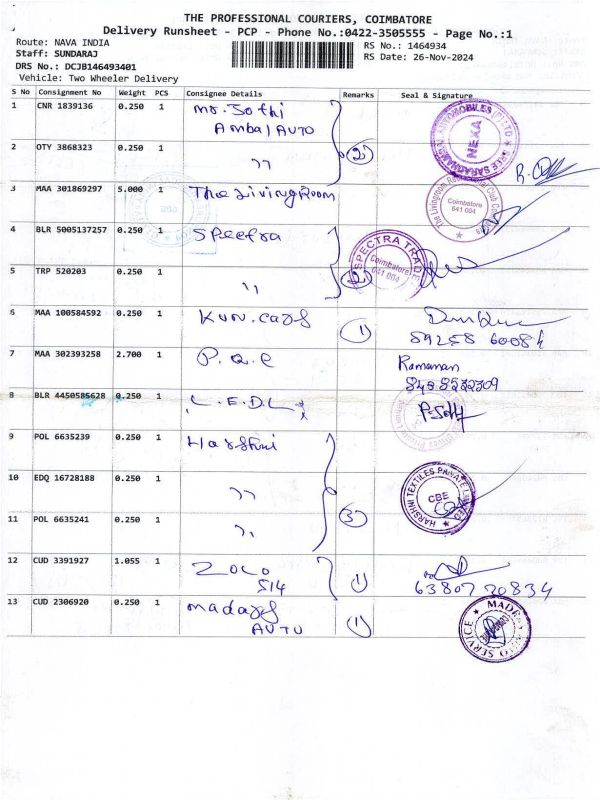 THE PROFESSIONAL COURIERS, COIMBATORE
Delivery Runsheet - PCP - Phone No.:0422-3505555 - Page No.:1
Route: NAVA INDIA
RS No.: 1464934
Staff: SUNDARAJ
RS Date: 26-Nov-2024
DRS No.: DCJB146493401
Vehicle: Two Wheeler Delivery
S No Consignment No Weight PCS Consignee Details Remarks Seal & Signature
1 CNR 1839136 0.250 1 Mr. Jothi
Ambal AUTO
2 OTY 3868323 0.250 1 " 2
3 MAA 301869297 5.000 1 The Living Room
4 BLR 5005137257 0.250 1 Spectra
SPECTRA TRAD
Coimbatore
641 004
5 TRP 520203 0.250 1 " 2
6 MAA 100584592 0.250 1 KUN. cars 1
7 MAA 302393258 2.700 1 Ramanan
8 BLR 4450585628 0.250 1 L.E.D.L
9 POL 6635239 0.250 1 Harshni
10 EDQ 16728188 0.250 1 "
HARSHNI TEXTILES PRIVATE LIMITED
CBE
11 POL 6635241 0.250 1 " 3
12 CUD 3391927 1.055 1 ZOLO
514 1
63807 20834
13 CUD 2306920 0.250 1 Madars
AUTO 1
NEXA
Coimbatore
641 004